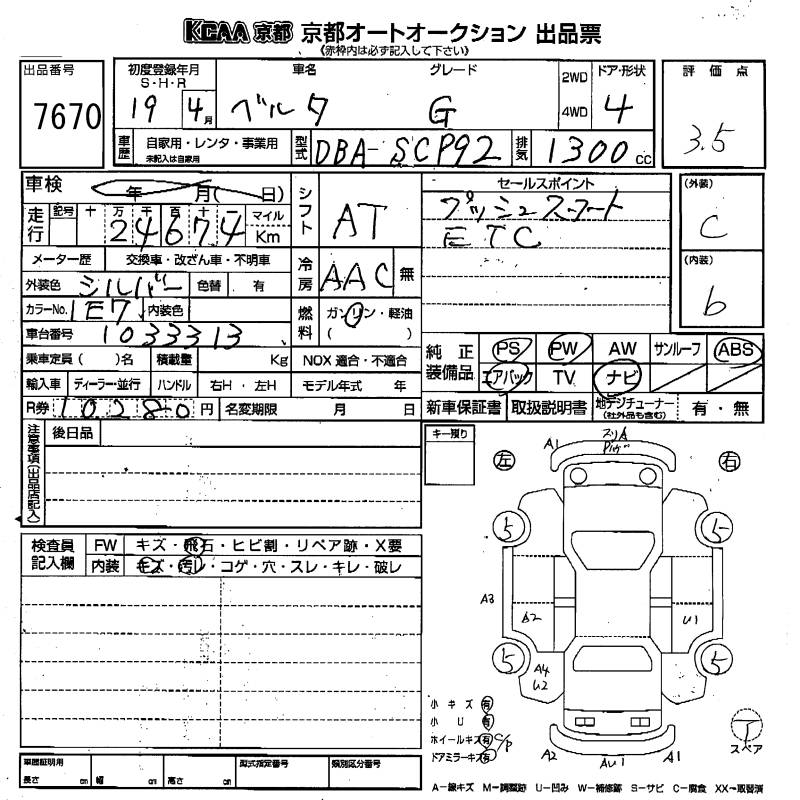 KCAA 京都 京都オートオークション 出品票
《赤枠内は必ず記入して下さい》
出品番号 初度登録年月 車名 グレード 2WD ドア・形状 評価点
S・H・R
7670 19 4月 ベルタ G 4WD 4 3.5
車歴 自家用・レンタ・事業用 型式 DBA-SCP92 排気 1300 cc
未記入は自家用
車検 年 月( 日) シフト AT セールスポイント (外装)
プッシュスタート C
走行 記号 十 万 千 百 十 一 マイル Km
2 4 6 7 4 ETC
メーター歴 交換車・改ざん車・不明車 冷房 AAC 無 (内装)
外装色 シルバー 色替 有 b
カラーNo. 1E7 内装色 燃料 ガソリン・軽油
( )
車台番号 1033313
乗車定員( )名 積載量 Kg NOX 適合・不適合
純正装備品 PS PW AW サンルーフ ABS
エアバック TV ナビ
輸入車 ディーラー・並行 ハンドル 右H・左H モデル年式 年
R券 10280 円 名変期限 月 日
新車保証書 取扱説明書 地デジチューナー (社外品も含む) 有・無
注意事項(出品店記入) 後日品
キー残り A1 スリキ
左 右
5 5
検査員記入欄 FW キズ・飛石・ヒビ割・リペア跡・X要
内装 キズ・汚レ・コゲ・穴・スレ・キレ・破レ
A3 A2 U1
5 5
A4
U2
小キズ 有
小U 有
ホイールキズ 有 C/P
ドアミラーキズ 有
スペア
A2 AU1 A1
車歴証明用 型式指定番号 類別区分番号
長さ cm 幅 cm 高さ cm
A−線キズ M−調整跡 U−凹み W−補修跡 S−サビ C−腐食 XX→取替済